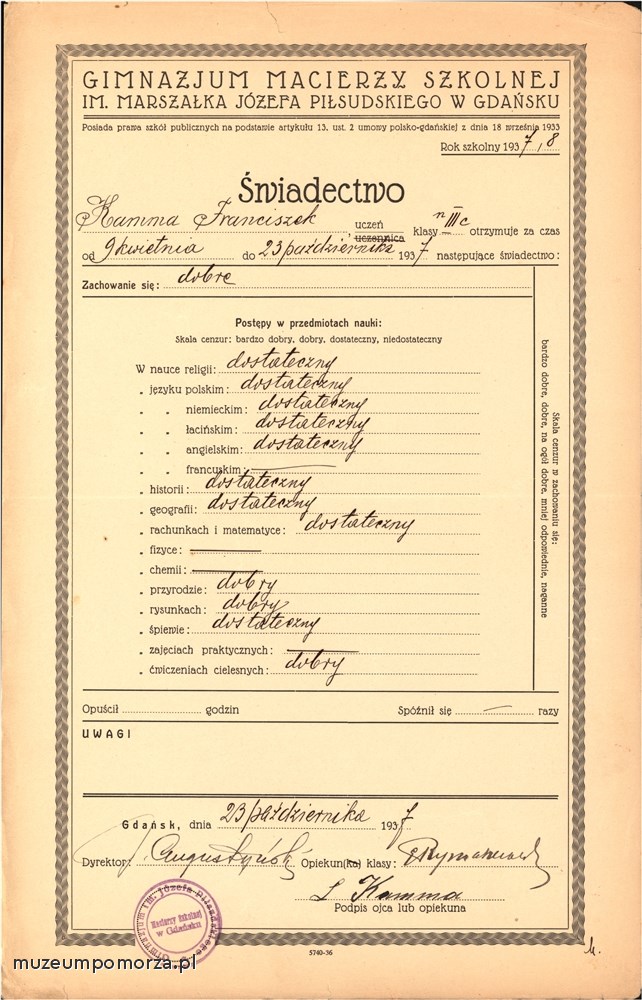 GIMNAZJUM MACIERZY SZKOLNEJ
IM. MARSZAŁKA JÓZEFA PIŁSUDSKIEGO W GDAŃSKU
Posiada prawa szkół publicznych na podstawie artykułu 13. ust. 2 umowy polsko-gdańskiej z dnia 18 września 1933
Rok szkolny 1937/8
Świadectwo
Kamma Franciszek, uczeń uczennica klasy III c otrzymuje za czas
od 9 kwietnia do 23 października 1937 następujące świadectwo:
Zachowanie się: dobre
Postępy w przedmiotach nauki:
Skala cenzur: bardzo dobry, dobry, dostateczny, niedostateczny
W nauce religii: dostateczny
„ języku polskim: dostateczny
„ „ niemieckim: dostateczny
„ „ łacińskim: dostateczny
„ „ angielskim: dostateczny
„ „ francuskim: —
„ historii: dostateczny
„ geografii: dostateczny
„ rachunkach i matematyce: dostateczny
„ fizyce: —
„ chemii: —
„ przyrodzie: dobry
„ rysunkach: dobry
„ śpiewie: dostateczny
„ zajęciach praktycznych: —
„ ćwiczeniach cielesnych: dobry
Skala cenzur w zachowaniu się:
bardzo dobre, dobre, na ogół dobre, mniej odpowiednie, naganne
Opuścił godzin Spóźnił się — razy
UWAGI
Gdańsk, dnia 23 października 1937
Dyrektor: J. Augustyński Opiekun(ka) klasy:
Kamma
Podpis ojca lub opiekuna
Gimnazjum im. Józefa Piłsudskiego
Macierzy Szkolnej
w Gdańsku
5740-36
muzeumpomorza.pl